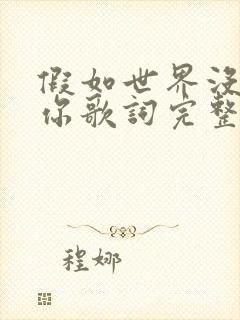 假如世界没
你歌詞完整
程娜